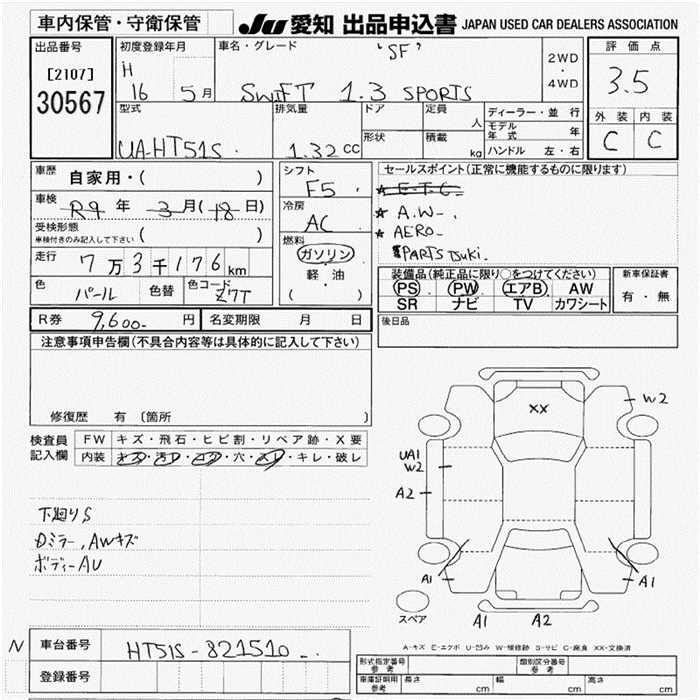 車内保管・守衛保管
JU 愛知 出品申込書 JAPAN USED CAR DEALERS ASSOCIATION
出品番号
[2107]
30567
初度登録年月
H
16 5 月
車名・グレード
'SF'
SWIFT 1.3 SPORTS
2WD
・
4WD
評価点
3.5
外装 内装
C C
型式
UA-HT51S
排気量
1.32 cc
ドア
形状
定員
人
積載
kg
ディーラー・並行
モデル年式 年
ハンドル 左・右
車歴
自家用・( )
車検
R9 年 3 月 (18 日)
受検形態
車検付きのみ記入して下さい ( )
走行
7 万 3 千 176 km
色
パール
色替
色コード
Z7T
シフト
F5
冷房
AC
燃料
ガソリン
・
軽・油
( )
セールスポイント(正常に機能するものに限ります)
★ E-T-C
★ A.W-
★ AERO-
PARTS TSUKI.
装備品(純正品に限り○をつけてください)
PS PW エアB AW
SR ナビ TV カワシート
新車保証書
有・無
R券 9,600- 円
名変期限 月 日
後日品
注意事項申告欄(不具合内容等は具体的に記入して下さい)
修復歴 有 〔箇所 〕
検査員
記入欄
FW キズ・飛石・ヒビ割・リペア跡・X要
内装 キズ・汚レ・コゲ・穴・スレ・キレ・破レ
下廻りS
Dミラー,AWキズ
ボディーAU
XX
W2
UA1
W2
A2
A1
A1
A1
A2
スペア
A-キズ E-エクボ U-凹み W-補修跡 S-サビ C-腐食 XX-交換済
N
車台番号
HT51S-821510
登録番号
形式指定番号
参考
類別区分番号
参考
車庫証明用
参考
長さ cm
幅 cm
高さ cm